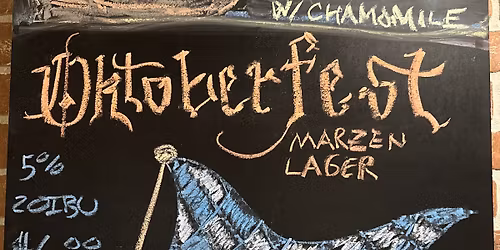 W/ CHAMOMILE
Oktoberfest
MARZEN
LAGER
5%
20IBU